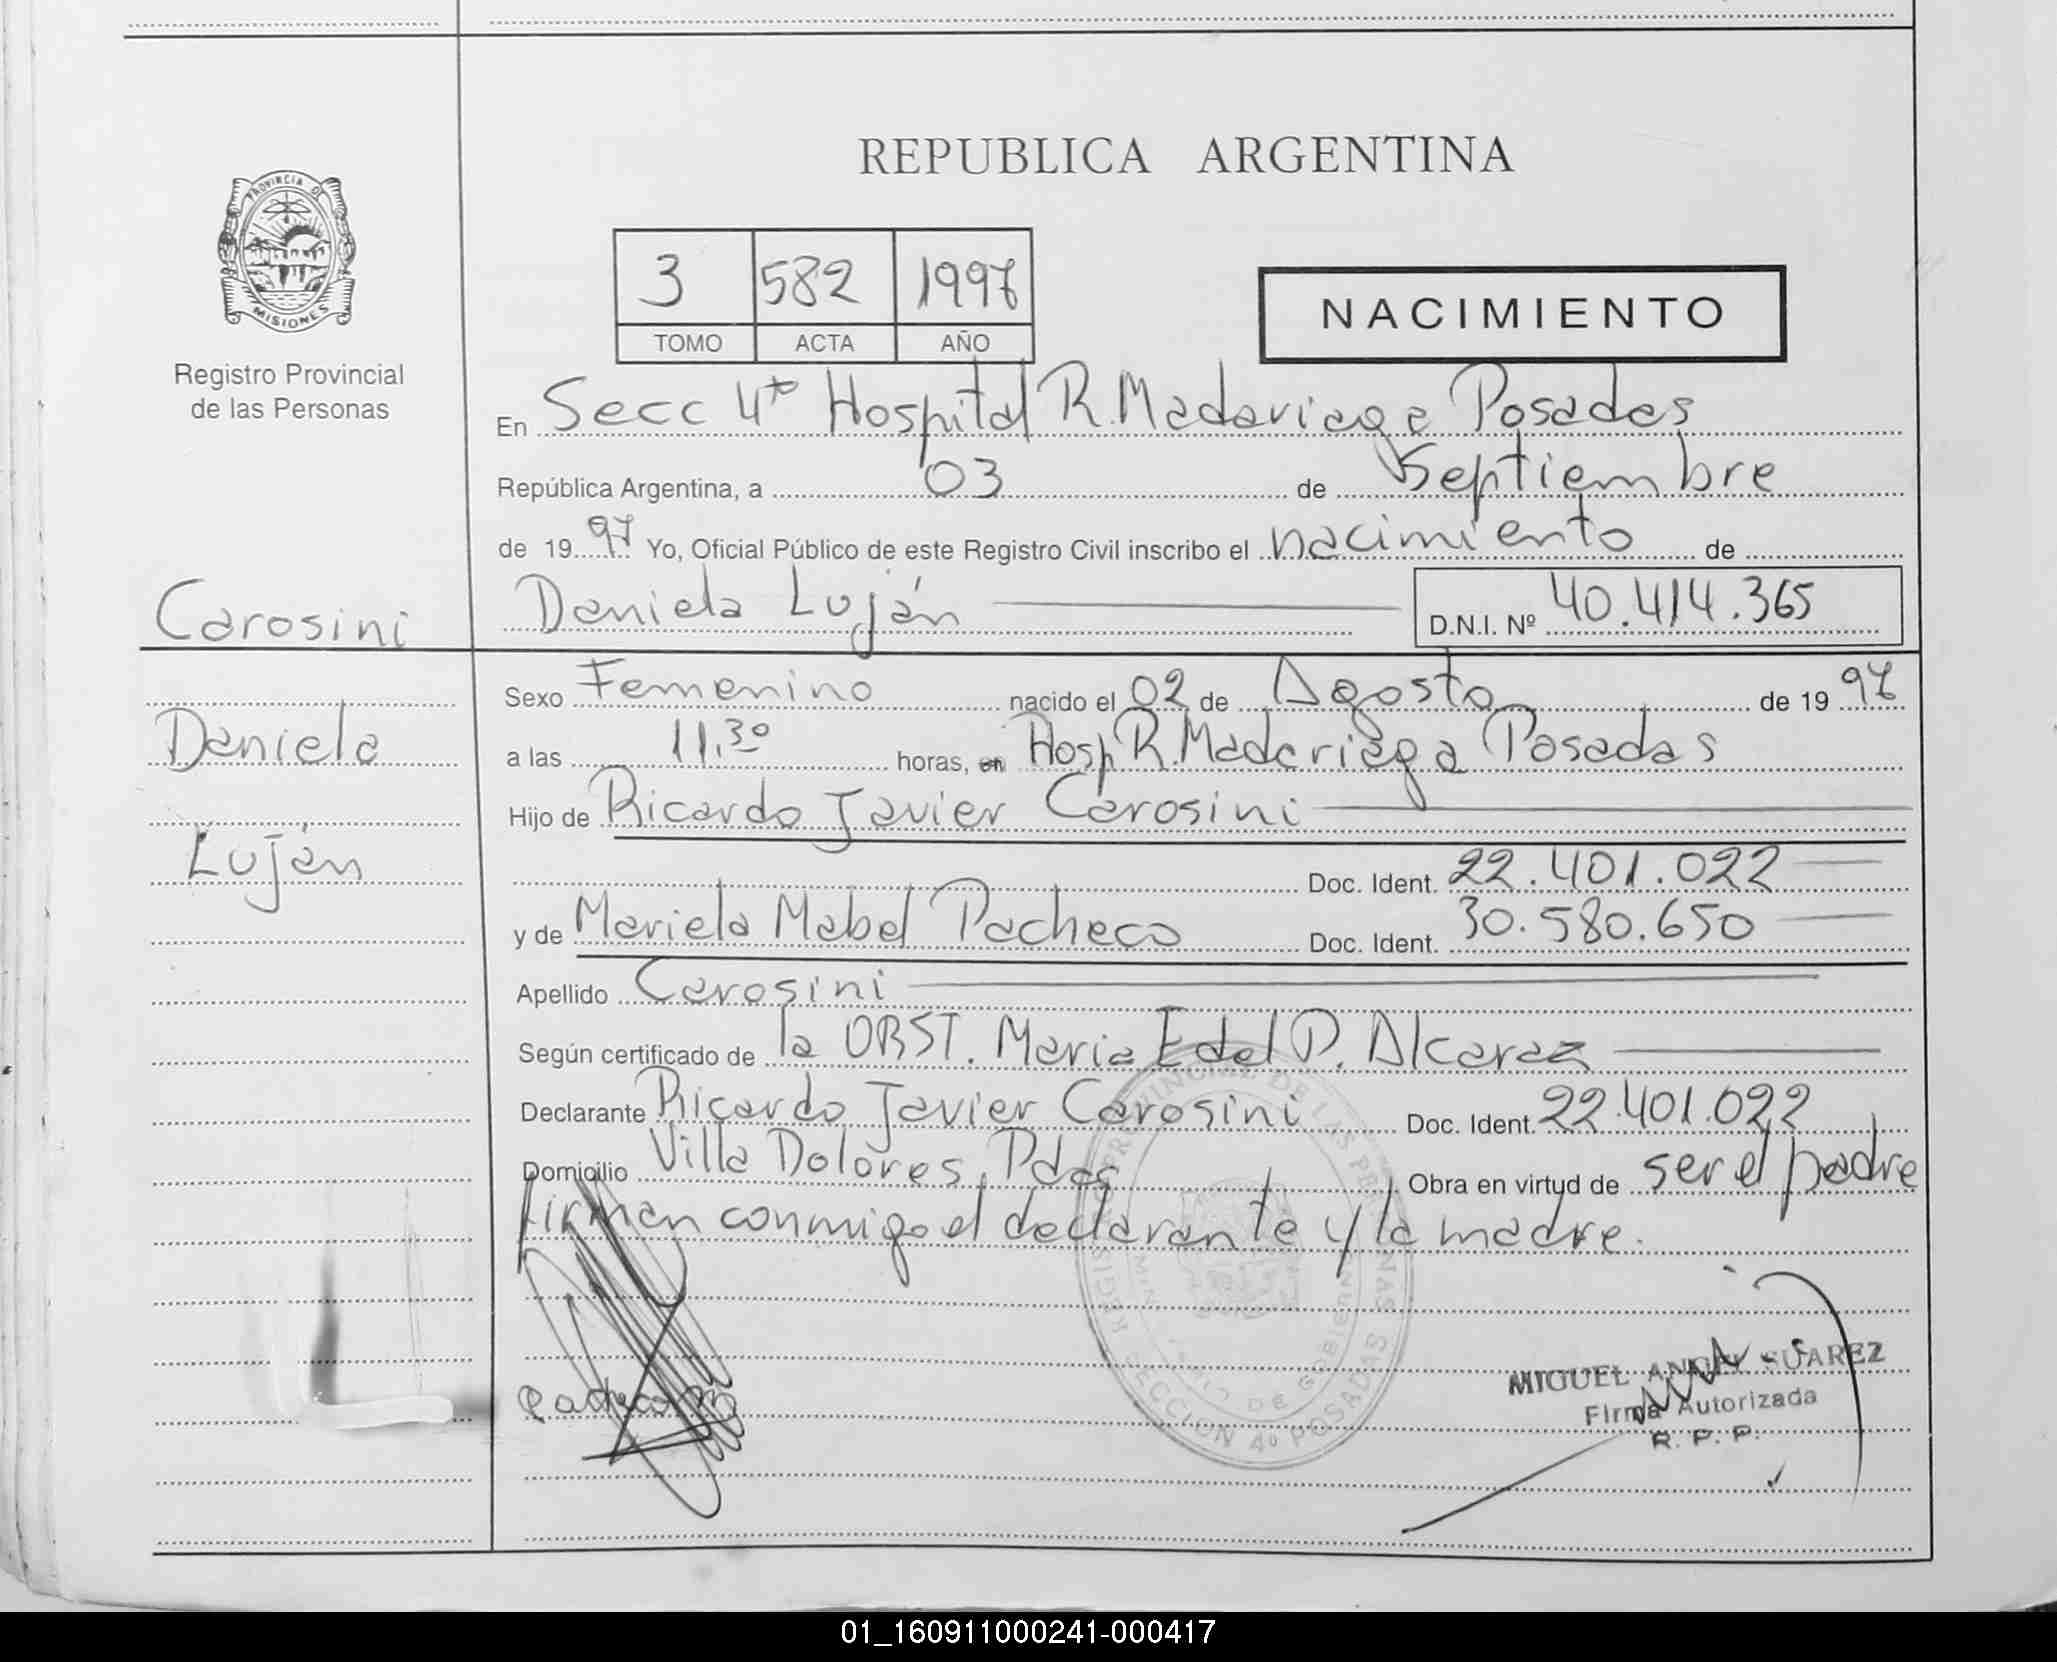 REPUBLICA ARGENTINA
PROVINCIA D
MISIONES
Registro Provincial
de las Personas
3 582 1997
TOMO ACTA AÑO
NACIMIENTO
En Secc 4ta Hospital R. Madariaga Posadas
República Argentina, a 03 de Septiembre
de 1997 Yo, Oficial Público de este Registro Civil inscribo el nacimiento de
Carosini
Daniela Luján
D.N.I. Nº 40.414.365
Sexo Femenino nacido el 02 de Agosto de 1997
Daniela
a las 11.30 horas, en Hosp R. Madariaga Posadas
Hijo de Ricardo Javier Carosini
Luján
Doc. Ident. 22.401.022
y de Mariela Mabel Pacheco Doc. Ident. 30.580.650
Apellido Carosini
Según certificado de la OBST. Maria Edel P. Alcaraz
Declarante Ricardo Javier Carosini Doc. Ident. 22.401.022
Domicilio Villa Dolores, Pdas Obra en virtud de ser el padre
Firman conmigo el declarante y la madre.
REGISTRO PROVINCIAL DE LAS PERSONAS
SECCION 4º POSADAS
DE GOBIERNO
Pacheco
MIGUEL ANGEL SUAREZ
Firma Autorizada
R. P. P.
01_160911000241-000417